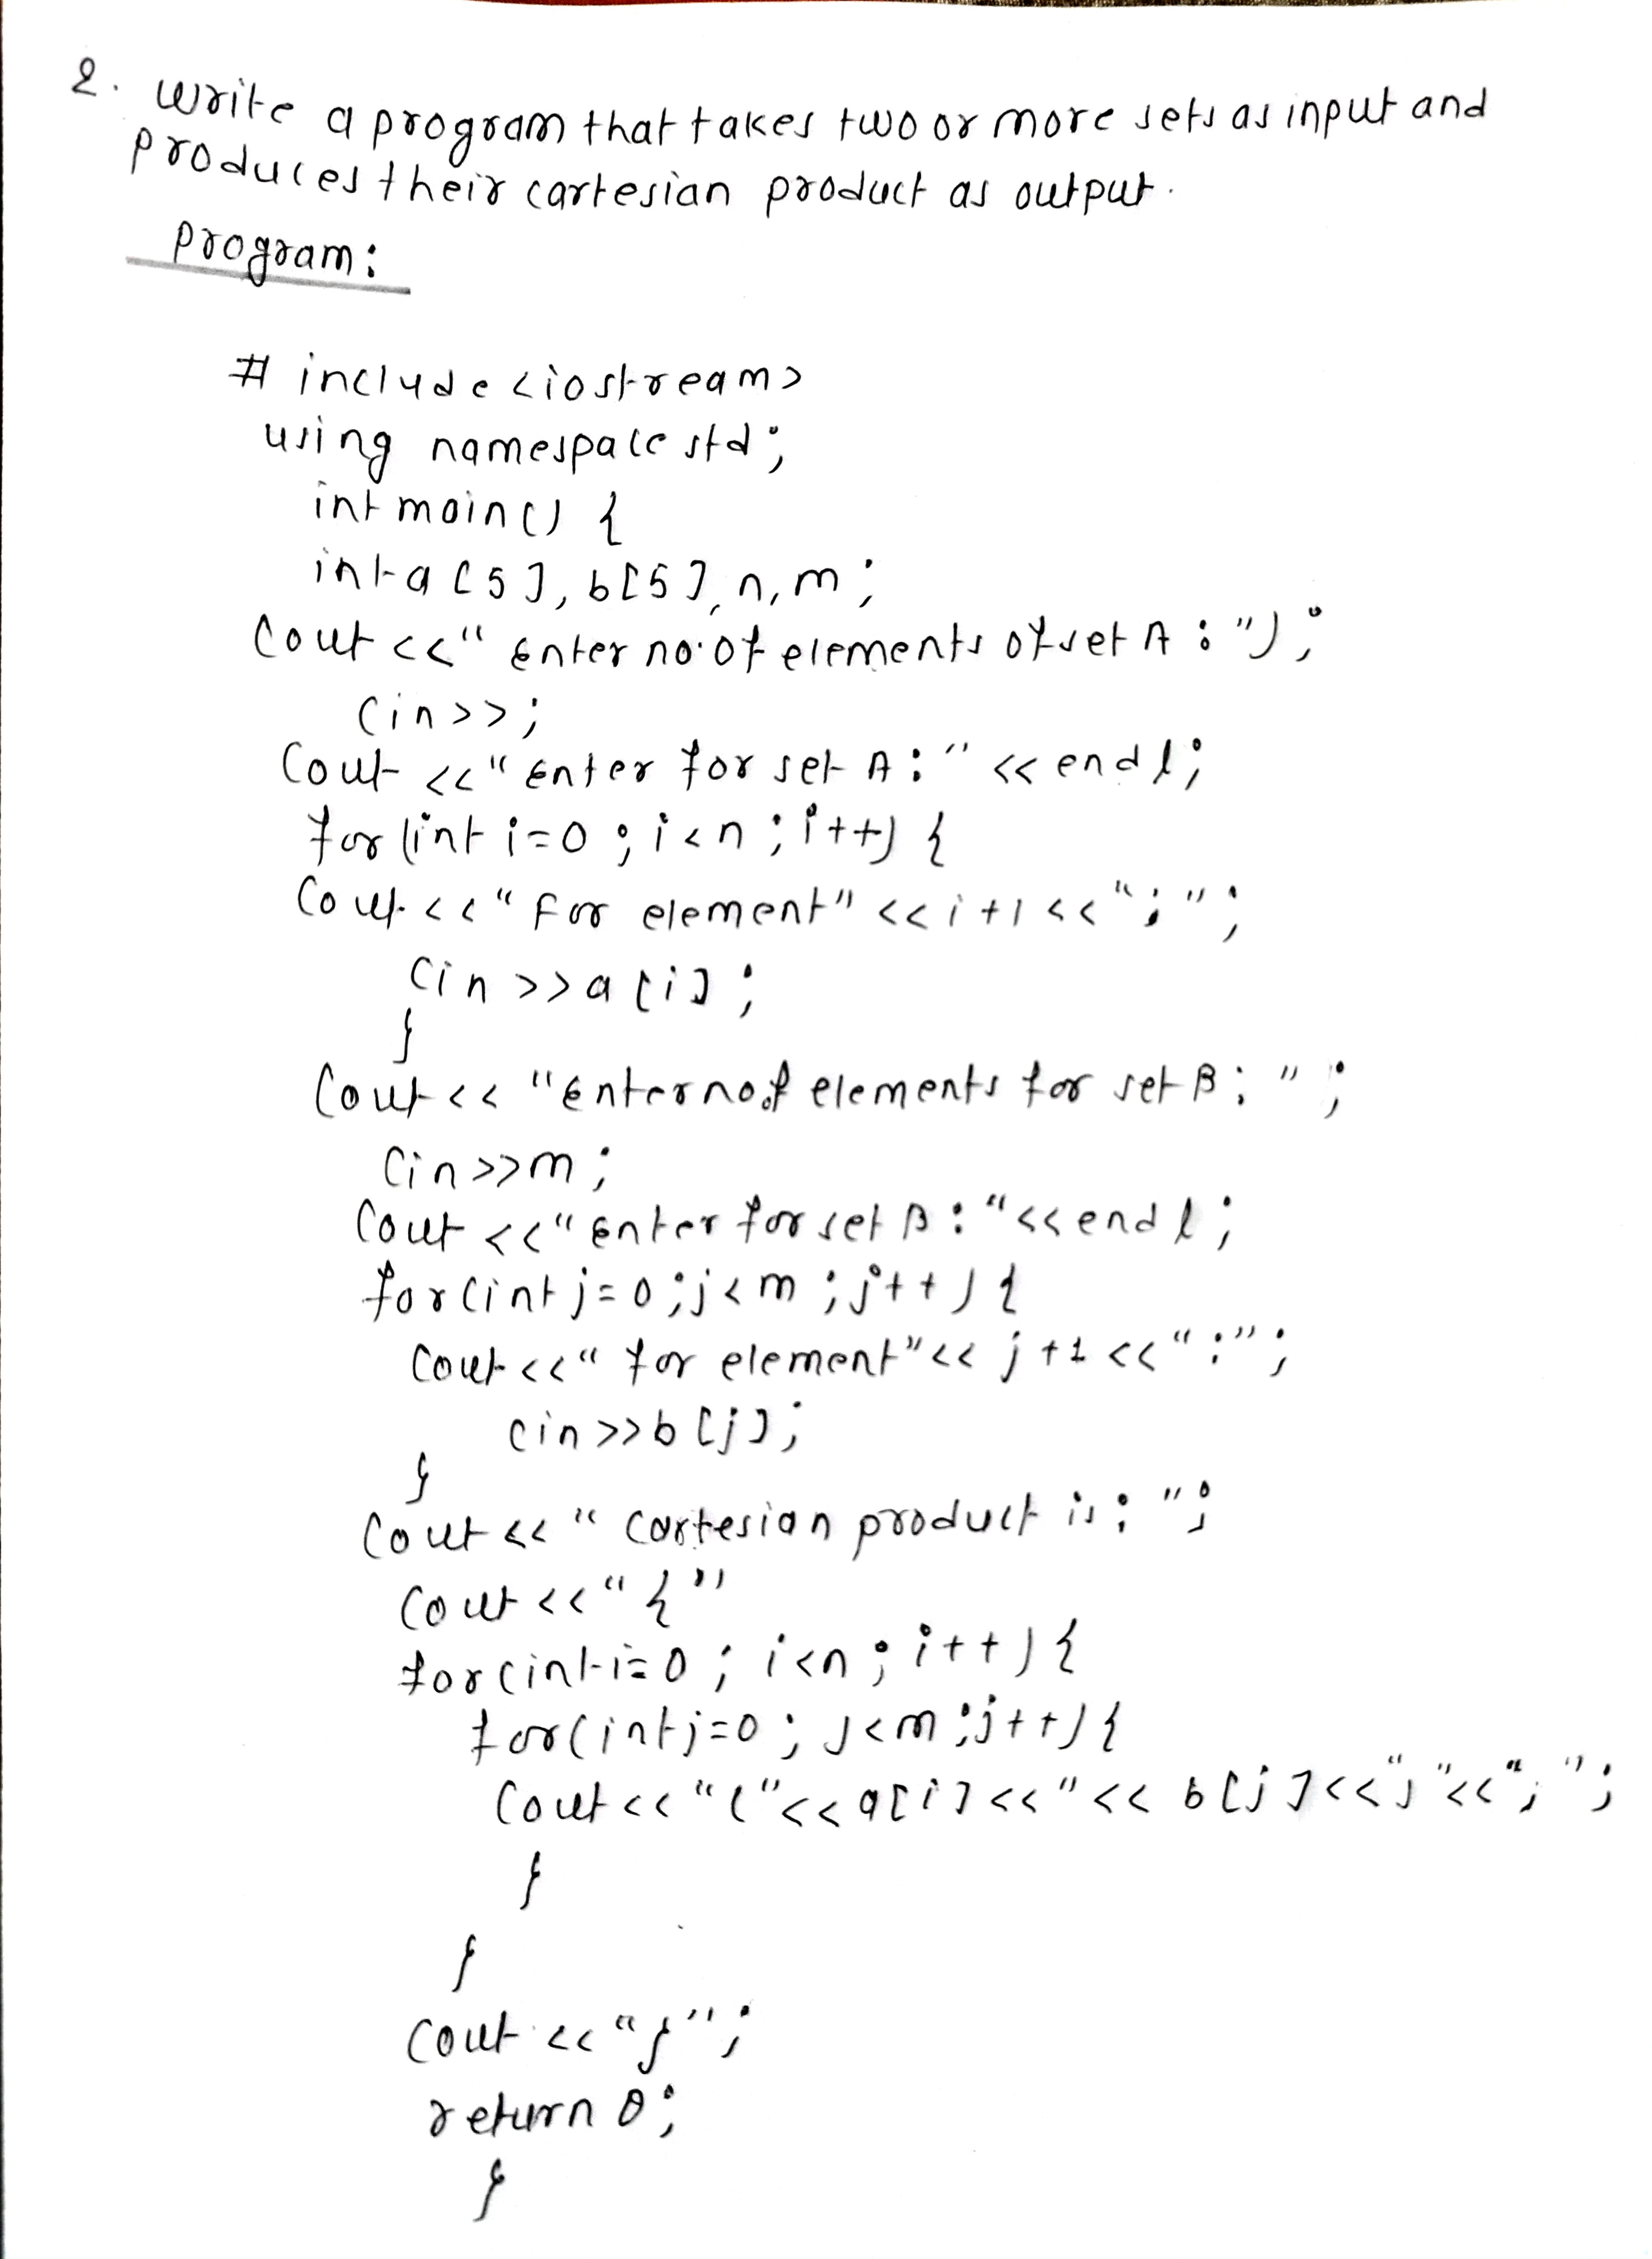 2. Write a program that takes two or more sets as input and
produces their cartesian product as output.
Program:
# include <iostream>
using namespace std;
int main() {
int a[5], b[5], n, m;
Cout <<" Enter no.of elements of set A : ");
Cin>>;
Cout <<"Enter for set A : " << endl;
for(int i=0 ; i<n ; i++) {
Cout << " For element" << i+1 <<" ; ";
Cin >>a[i];
}
Cout<< "Enter no.of elements for set B : " ;
Cin>>m;
Cout <<"Enter for set B : "<<endl;
for(int j=0 ; j<m ; j++) {
Cout<<" for element"<< j+1 <<" : ";
cin >>b[j];
}
Cout << " Cartesian product is : ";
Cout <<" { "
for(int i=0 ; i<n ; i++) {
for(int j=0 ; j<m ; j++) {
Cout<< "("<< a[i] <<"<< b[j]<<")"<<"; ";
}
}
Cout <<"}";
return 0;
}